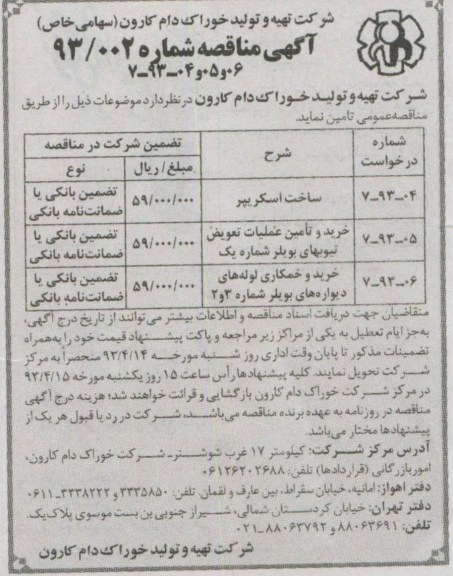 شرکت تهیه و تولید خوراک دام کارون (سهامی خاص)
آگهی مناقصه شماره ۹۳/۰۰۲
۷-۹۳-۰۴ و ۰۵ و ۰۶
شرکت تهیه و تولید خوراک دام کارون در نظر دارد موضوعات ذیل را از طریق
مناقصه عمومی تامین نماید.
شماره درخواست | شرح | تضمین شرکت در مناقصه
مبلغ/ ریال | نوع
۷-۹۳-۰۴ | ساخت اسکریپر | ۵۹/۰۰۰/۰۰۰ | تضمین بانکی یا ضمانت‌نامه بانکی
۷-۹۳-۰۵ | خرید و تأمین عملیات تعویض تیوبهای بویلر شماره یک | ۵۹/۰۰۰/۰۰۰ | تضمین بانکی یا ضمانت‌نامه بانکی
۷-۹۳-۰۶ | خرید و خمکاری لوله‌های دیواره‌های بویلر شماره ۳و۲ | ۵۹/۰۰۰/۰۰۰ | تضمین بانکی یا ضمانت‌نامه بانکی
متقاضیان جهت دریافت اسناد مناقصه و اطلاعات بیشتر می‌توانند از تاریخ درج آگهی،
به‌جز ایام تعطیل به یکی از مراکز زیر مراجعه و پاکت پیشنهاد قیمت خود را به‌همراه
تضمینات مذکور تا پایان وقت اداری روز شنبه مورخه ۹۳/۴/۱۴ منحصراً به مرکز
شرکت تحویل نمایند. کلیه پیشنهادها رأس ساعت ۱۵ روز یکشنبه مورخه ۹۳/۴/۱۵
در مرکز شرکت خوراک دام کارون بازگشایی و قرائت خواهند شد؛ هزینه درج آگهی
مناقصه در روزنامه به عهده برنده مناقصه می‌باشد، شرکت در رد یا قبول هر یک از
پیشنهادها مختار می‌باشد.
آدرس مرکز شرکت: کیلومتر ۱۷ غرب شوشتر- شرکت خوراک دام کارون،
امور بازرگانی (قراردادها) تلفن: ۰۶۱۳۶۲۰۲۶۸۸
دفتر اهواز: امانیه، خیابان سقراط، بین عارف و لقمان. تلفن: ۳۳۳۵۸۵۰ و ۳۳۳۸۲۲۲-۰۶۱۱
دفتر تهران: خیابان کردستان شمالی، شیراز جنوبی بن بست موسوی پلاک یک.
تلفن: ۸۸۰۶۳۶۹۱ و ۸۸۰۶۳۷۹۲-۰۲۱
شرکت تهیه و تولید خوراک دام کارون